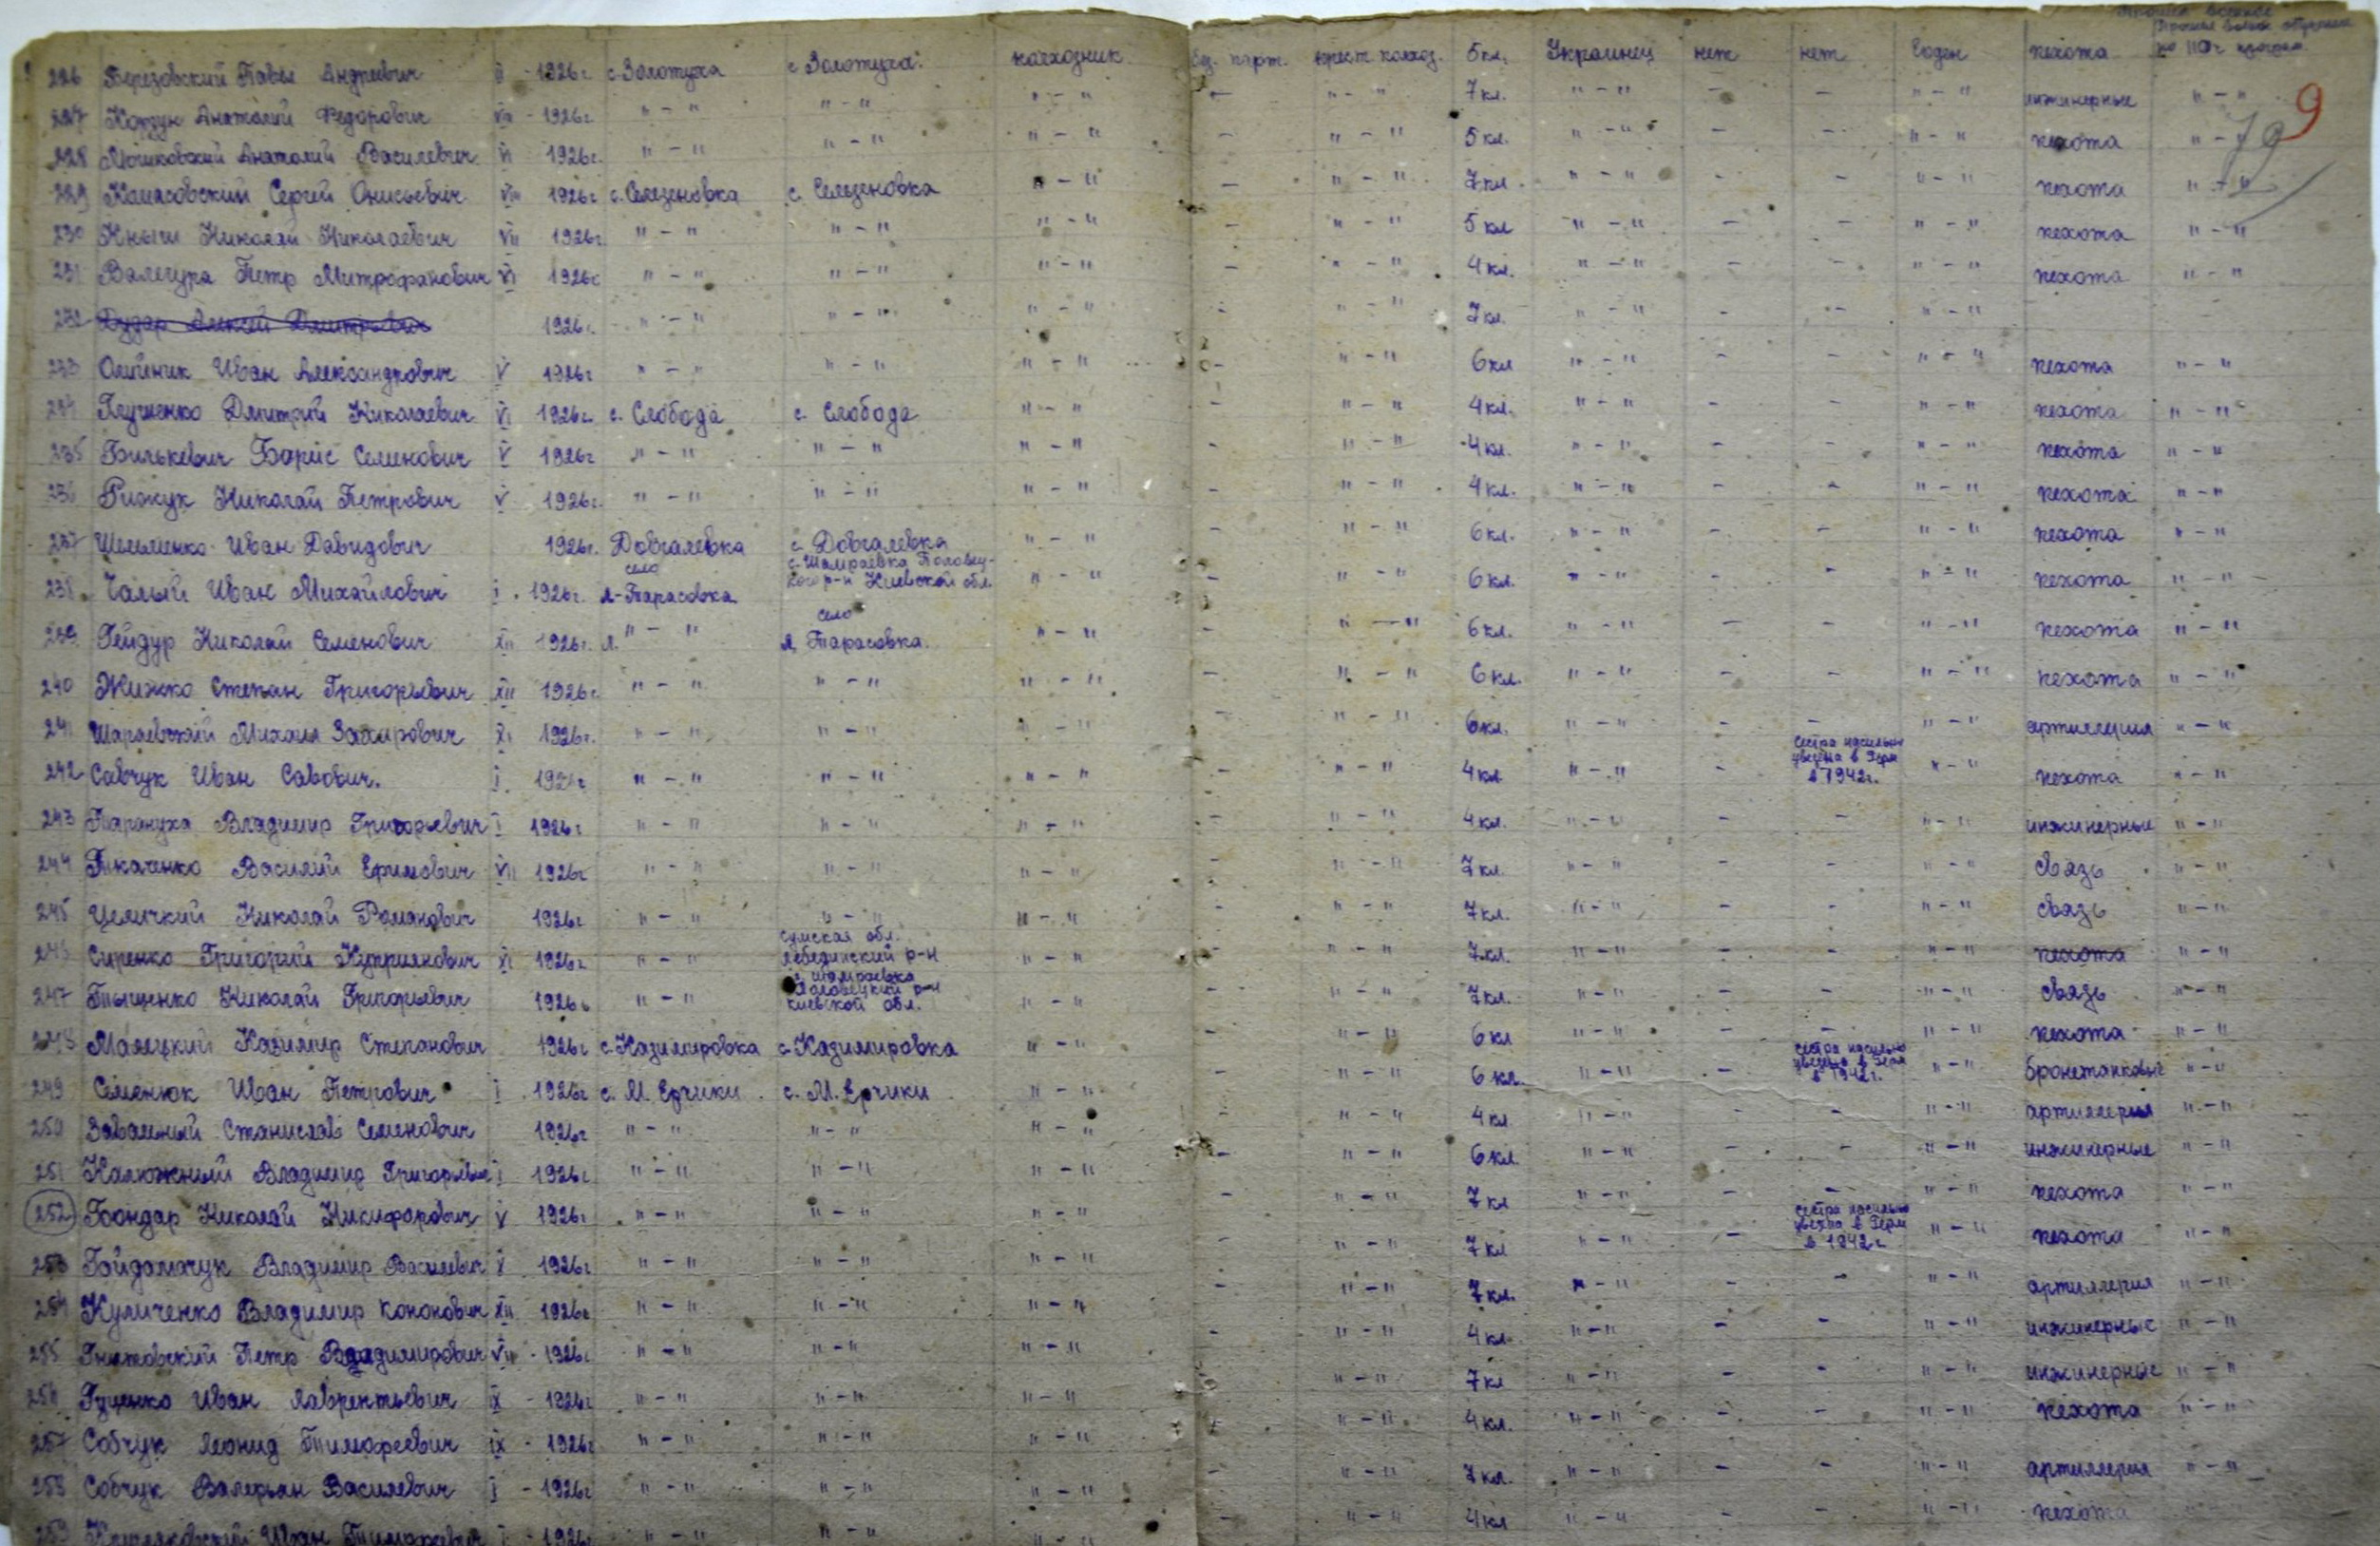 Прошел военное
Прошел воен. обучение
226 Березовский Павел Андреевич II - 1926г. с. Золотуха с. Золотуха. колхозник. Без. парт. крест. колхоз. 5 кл. Украинец нет нет Годен пехота по 110 ч. програм.
227 Корзун Анатолий Федорович VIII - 1926г. " - " " - " " - " - " - " 7 кл. " - " - - " - " инжинерные " - " 9
228 Мошковский Анатолий Василевич VI 1926г. " - " " - " " - " - " - " 5 кл. " - " - - " - " пехота " - "
229 Сергей Онисьевич VIII 1926г с. Селезеновка с. Селезеновка " - " - " - " 7 кл. " - " - - " - " пехота " - "
230 Кныш Николай Николаевич VII 1926г. " - " " - " " - " - " - " 5 кл " - " - - " - " пехота " - "
231 Петр Митрофанович VI 1926г " - " " - " " - " - " - " 4 кл. " - " - - " - " пехота " - "
232 1926г. " - " " - " " - " - " - " 7 кл. " - " - - " - "
233 Олийник Иван Александрович V 1926г " - " " - " " - " - " - " 6 кл " - " - - " - " пехота " - "
234 Дмитрий Николаевич VI 1926г. с. Слобода с. Слобода " - " - " - " 4 кл. " - " - - " - " пехота " - "
235 Билькевич Борис Семенович V 1926г " - " " - " " - " - " - " 4 кл. " - " - - " - " пехота " - "
236 Рижук Николай Петрович V 1926г. " - " " - " " - " - " - " 4 кл. " - " - - " - " пехота " - "
237 Иван Давидович 1926г. Довгалевка с. Довгалевка " - " - " - " 6 кл. " - " - - " - " пехота " - "
село с. Шамраевка Половец-
238 Чалый Иван Михайлович I . 1926г. м-Тарасовка кого р-н Киевской обл. " - " - " - " 6 кл. " - " - - " - " пехота " - "
село
239 Гейдур Николай Семенович XII 1926г. м. " - " м. Тарасовка. " - " - " - " 6 кл. " - " - - " - " пехота " - "
240 Жижко Степан Григорьевич XII 1926г. " - " " - " " - " - " - " 6 кл. " - " - - " - " пехота " - "
241 Михаил XI 1926г. " - " " - " " - " - " - " 6 кл. " - " - - " - " артиллерия " - "
сестра насильно
увезена в Герм
242 Савчук Иван Савович. I 1926г " - " " - " " - " - " - " 4 кл " - " - в 1942г. " - " пехота " - "
243 Тарануха Владимир Григорьевич I 1926г " - " " - " " - " - " - " 4 кл. " - " - - " - " инжинерные " - "
244 Ткаченко Василий Ефимович VII 1926г " - " " - " " - " - " - " 7 кл. " - " - - " - " связь " - "
245 Целичкий Николай Романович 1926г " - " " - " " - " - " - " 7 кл. " - " - - " - " связь " - "
сумская обл.
246 Сиренко Григорий Куприянович XI 1926г " - " лебединский р-н " - " - " - " 7 кл. " - " - - " - " пехота " - "
с. шамраевка
Половецкий р-н
247 Тыщенко Николай Григорьевич 1926г " - " киевской обл. " - " - " - " 7 кл. " - " - - " - " связь " - "
248 Малецкий Казимир Степанович 1926г с. Казимировка с. Казимировка " - " - " - " 6 кл " - " - - " - " пехота " - "
сестра насильно
увезена в Герм
249 Семенюк Иван Петрович I . 1926г с. М. Ерчики с. М. Ерчики " - " - " - " 6 кл. " - " - в 1942г. " - " бронетанковые " - "
250 Завальный Станислав Семенович 1926г " - " " - " " - " - " - " 4 кл " - " - - " - " артиллерия " - "
251 Калюжный Владимир Григорьевич I 1926г " - " " - " " - " - " - " 6 кл. " - " - - " - " инжинерные " - "
252 Бондар Николай Никифорович V 1926г " - " " - " " - " - " - " 7 кл " - " - - " - " пехота " - "
сестра насильно
увезена в Герм
253 Гойдамачук Владимир Василевич X 1926г " - " " - " " - " - " - " 7 кл " - " - в 1942г " - " пехота " - "
254 Куличенко Владимир Кононович XII 1926г " - " " - " " - " - " - " 7 кл. " - " - - " - " артиллерия " - "
255 Гнатовский Петр Владимирович VII - 1926г " - " " - " " - " - " - " 4 кл. " - " - - " - " инжинерные " - "
256 Гуценко Иван Лаврентьевич IX - 1926г " - " " - " " - " " - " 7 кл " - " - - " - " инжинерные " - "
257 Собчук Леонид Тимофеевич IX - 1926г " - " " - " " - " " - " 4 кл. " - " - - " - " пехота " - "
258 Собчук Валерьян Василевич I - 1926г " - " " - " " - " - " - " 7 кл. " - " - - " - " артиллерия " - "
259 Иван Тимофеевич I - 1926г " - " " - " " - " - " - " 4 кл " - " - - " - " пехота